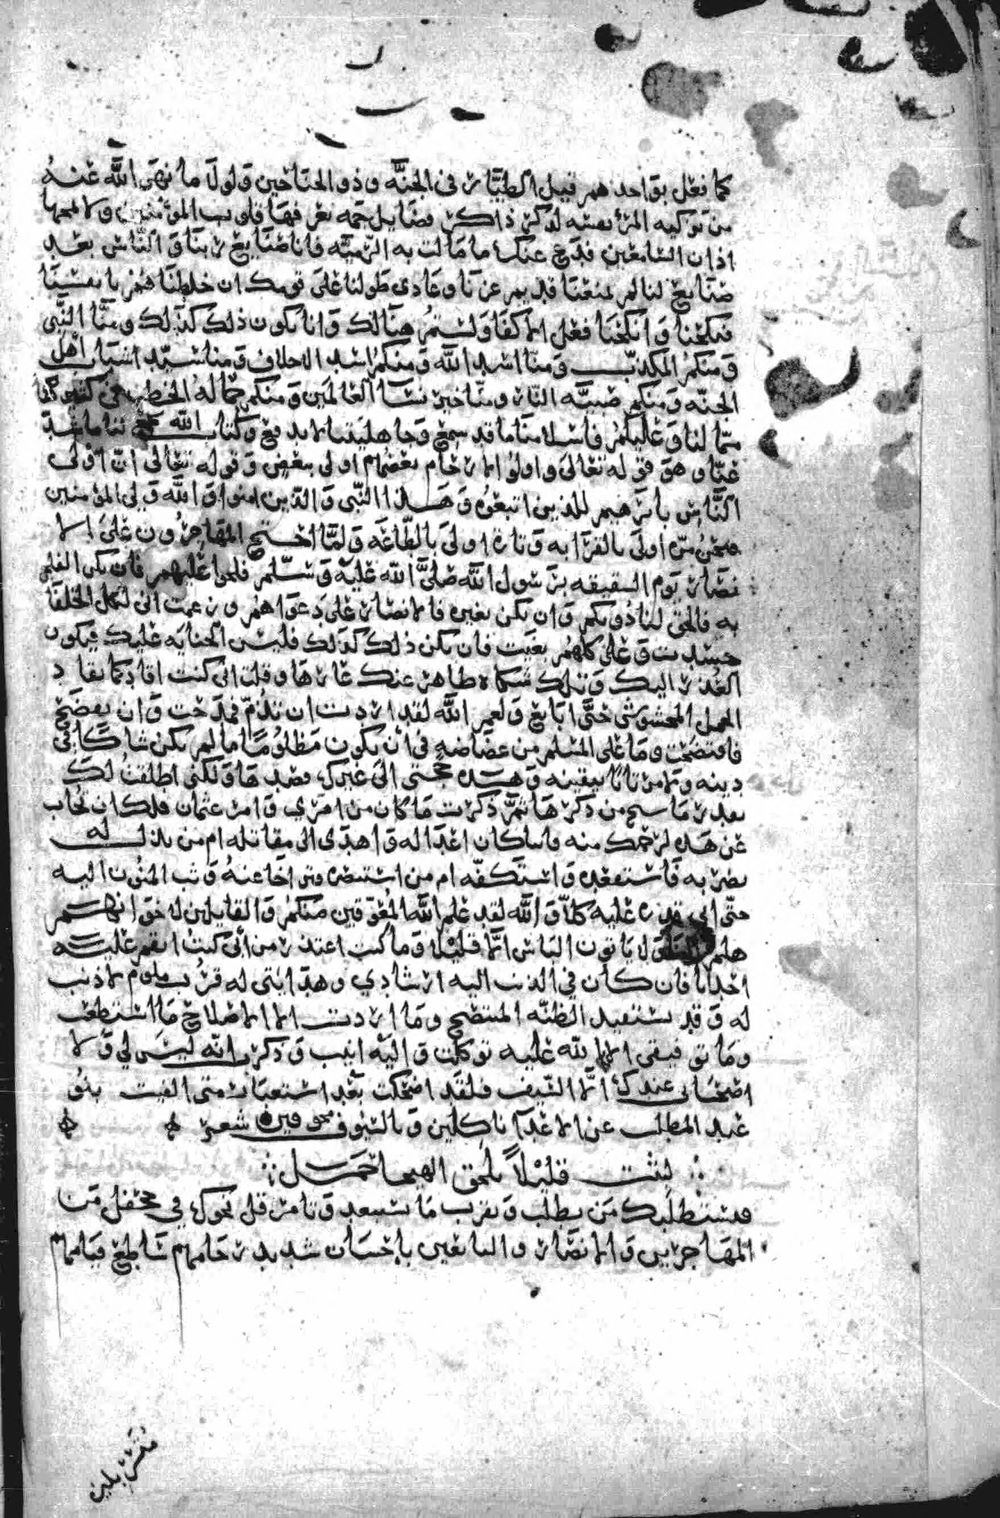 كما فعل بواحدهم قيل الطيار في الجنه وذو الجناحين ولولا ما نهى الله عنه
من تزكيه المرء نفسه لذكر ذاكر فضايل جمه تعرفها قلوب المؤمنين ولا تمجها
اذان السامعين فدع عنك ما مالت به الرميه فانا صنايع ربنا والناس بعد
صنايع لنا لم يمنعنا قديم عزنا وعادي طولنا على قومك ان خلطناهم بانفسنا
فنكحنا وانكحنا فعل الاكفا ولستم هنالك وانا يكون ذلك كذلك ومنا النبي
ومنكم المكذب ومنا اسد الله ومنكم اسد الاحلاف ومنا سيد اشباب اهل
الجنه ومنكم صبيه النار ومنا خير نسا العالمين ومنكم حماله الحطب في كثير
مما لنا وعليكم فاسلامنا ما قد سمع وجاهليتنا لا تدفع وكتاب الله يجمع لنا ما شذ
عنا وهو قوله تعالى واولوا الارحام بعضهم اولى ببعض وقوله تعالى ان اولى
الناس بابرهيم للذين اتبعوه وهذا النبي والذين امنوا والله ولي المؤمنين
فنحن مره اولى بالقرابه وتاره اولى بالطاعه ولما احتج المهاجرون على الا
نصار يوم السقيفه برسول الله صلى الله عليه وسلم فلجوا عليهم فان يكن الفلج
به فالحق لنا دونكم وان يكن بغير فالانصار على دعواهم وزعمت اني لكل الخلفا
حسدت وعلى كلهم بغيت فان يكن ذلك كذلك فليس الجنايه عليك فيكون
العذر اليك وتلك شكاه ظاهر عنك عارها وقلت اني كنت اقاد كما يقاد
الجمل المخشوش حتى ابايع ولعمر الله لقد اردت ان تذم فمدحت وان تفضح
فافتضحت وما على المسلم من غضاضه في ان يكون مظلوما ما لم يكن شاكا في
دينه ولا مرتابا بيقينه وهذه حجتي الى غيرك قصدها ولكني اطلقت لك
بقدر ما سنح من ذكرها ثم ذكرت ما كان من امري وامر عثمان فلك ان تجاب
عن هذه لرحمك منه فاينا كان اعدا له واهدى الى مقاتله ام من بذل له
نصرته فاستقعده واستكفه ام من استنصره فتراخا عنه وبث المنون اليه
حتى اتى قدره عليه كلا والله لقد علم الله المعوقين منكم والقايلين لاخوانهم
هلم الينا ولا ياتون الباس الا قليلا وما كنت اعتذر من اني كنت انقم عليه
احداثا فان كان في الذنب اليه ارشادي وهدايتي له فرب ملوم لا ذنب
له وقد يستفيد الظنه المتنصح وما اردت الا الاصلاح ما استطعت
وما توفيقي الا بالله عليه توكلت واليه انيب وذكرت انه ليس لي ولا
اصحابي عندك الا السيف فلقد اضحكت بعد استعبار متى الفيت بنو
عبد المطلب عن الاعدا ناكلين وبالسيوف مخوفين شعر
لبث قليلا يلحق الهيجا حمل
فسيطلبك من تطلب ويقرب ما تستبعد وانا مرقل نحوك في جحفل من
المهاجرين والانصار والتابعين باحسان شديد زحامهم ساطع قتامهم